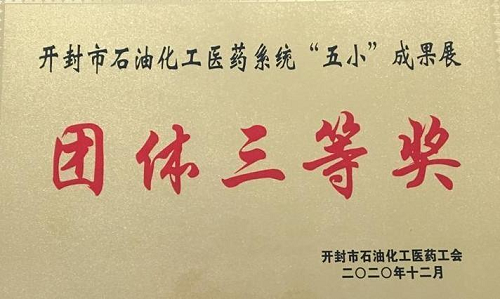 开封市石油化工医药系统“五小”成果展
团体三等奖
开封市石油化工医药工会
二〇二〇年十二月